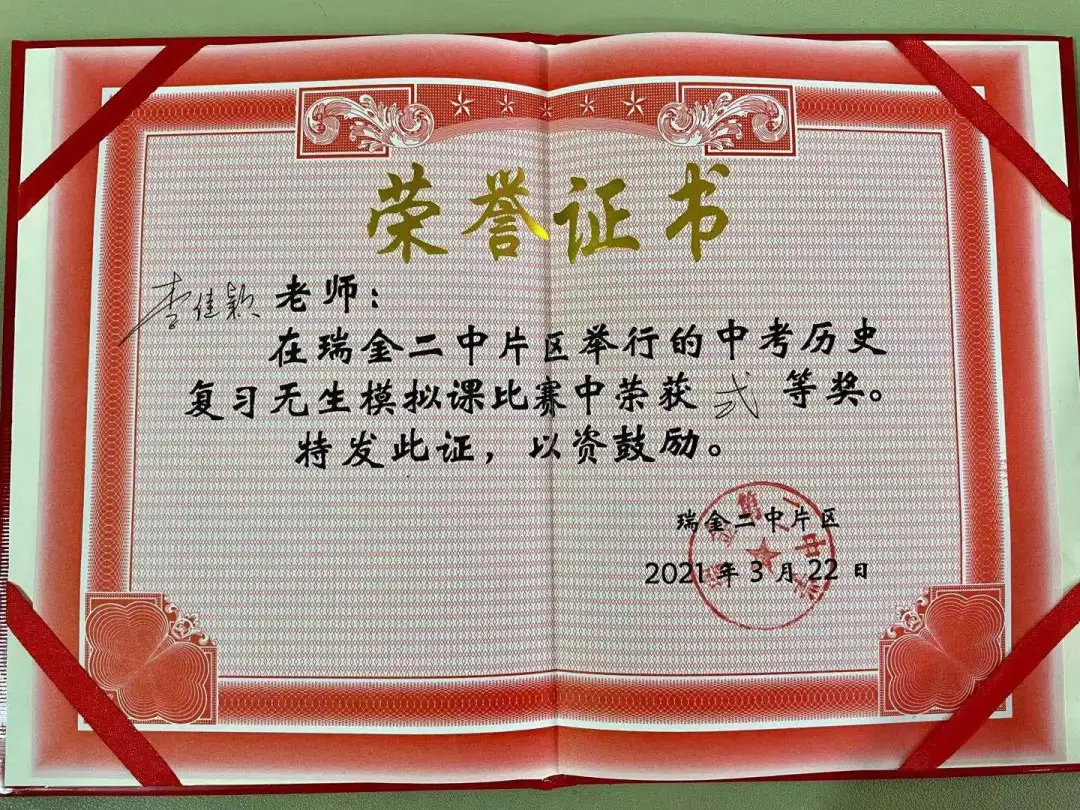 荣誉证书
李佳颖 老师：
在瑞金二中片区举行的中考历史
复习无生模拟课比赛中荣获 弍 等奖。
特发此证，以资鼓励。
瑞金二中片区
2021年3月22日